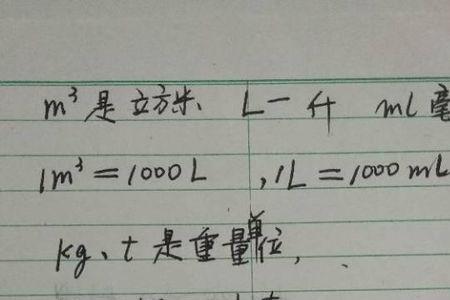 m³是立方米、 L一升 ml毫
1m³=1000L ,1L=1000mL
kg、t是重量单位,、